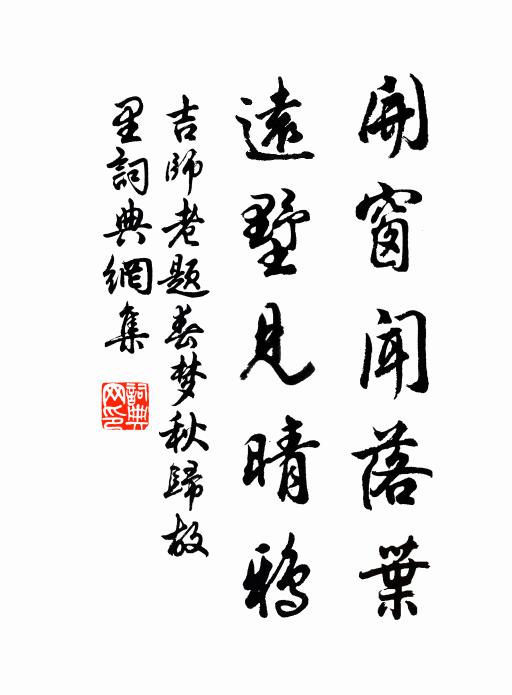 開窗聞落葉
遠墅見晴鴉
吉師老題春梦秋歸故
里詞典網集
詞典網印